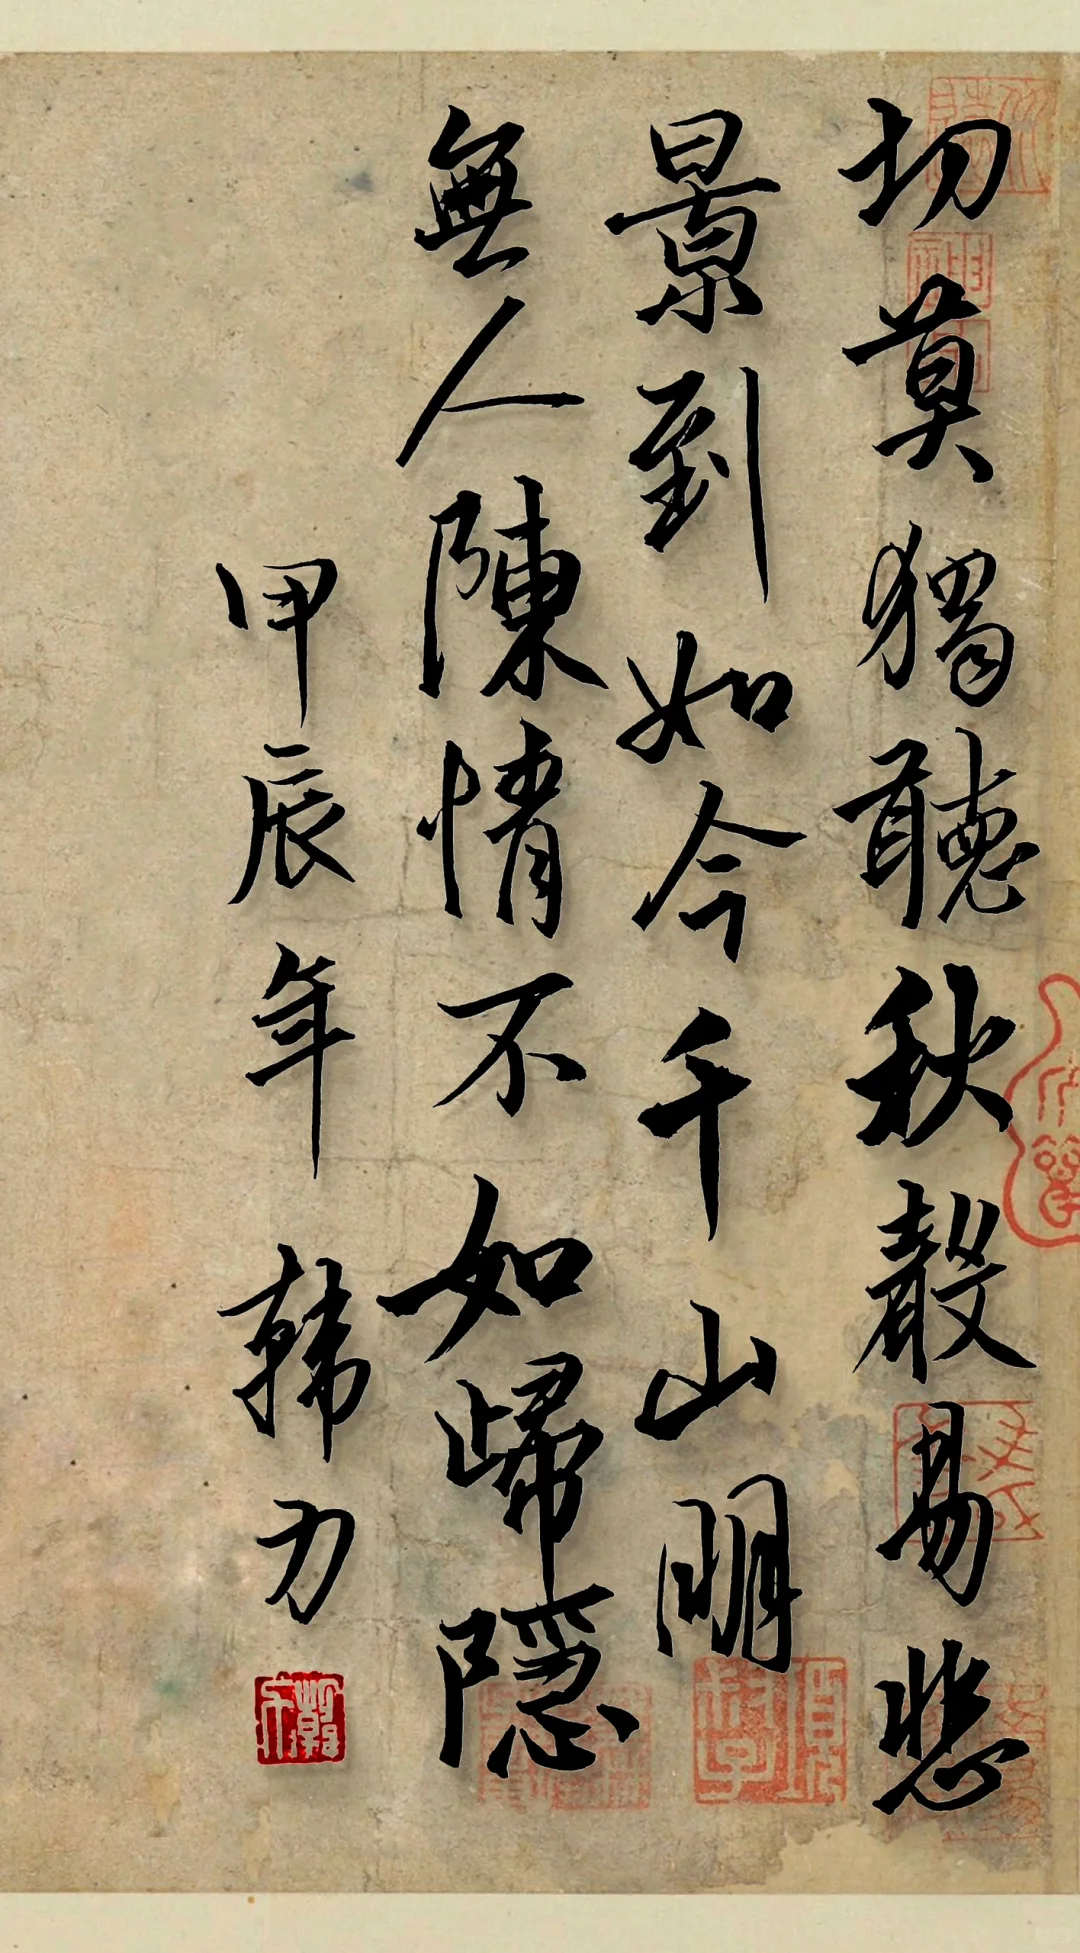 切莫獨聽秋聲易悲
景到如今千山明
無人陳情不如歸隱
甲辰年 韩力